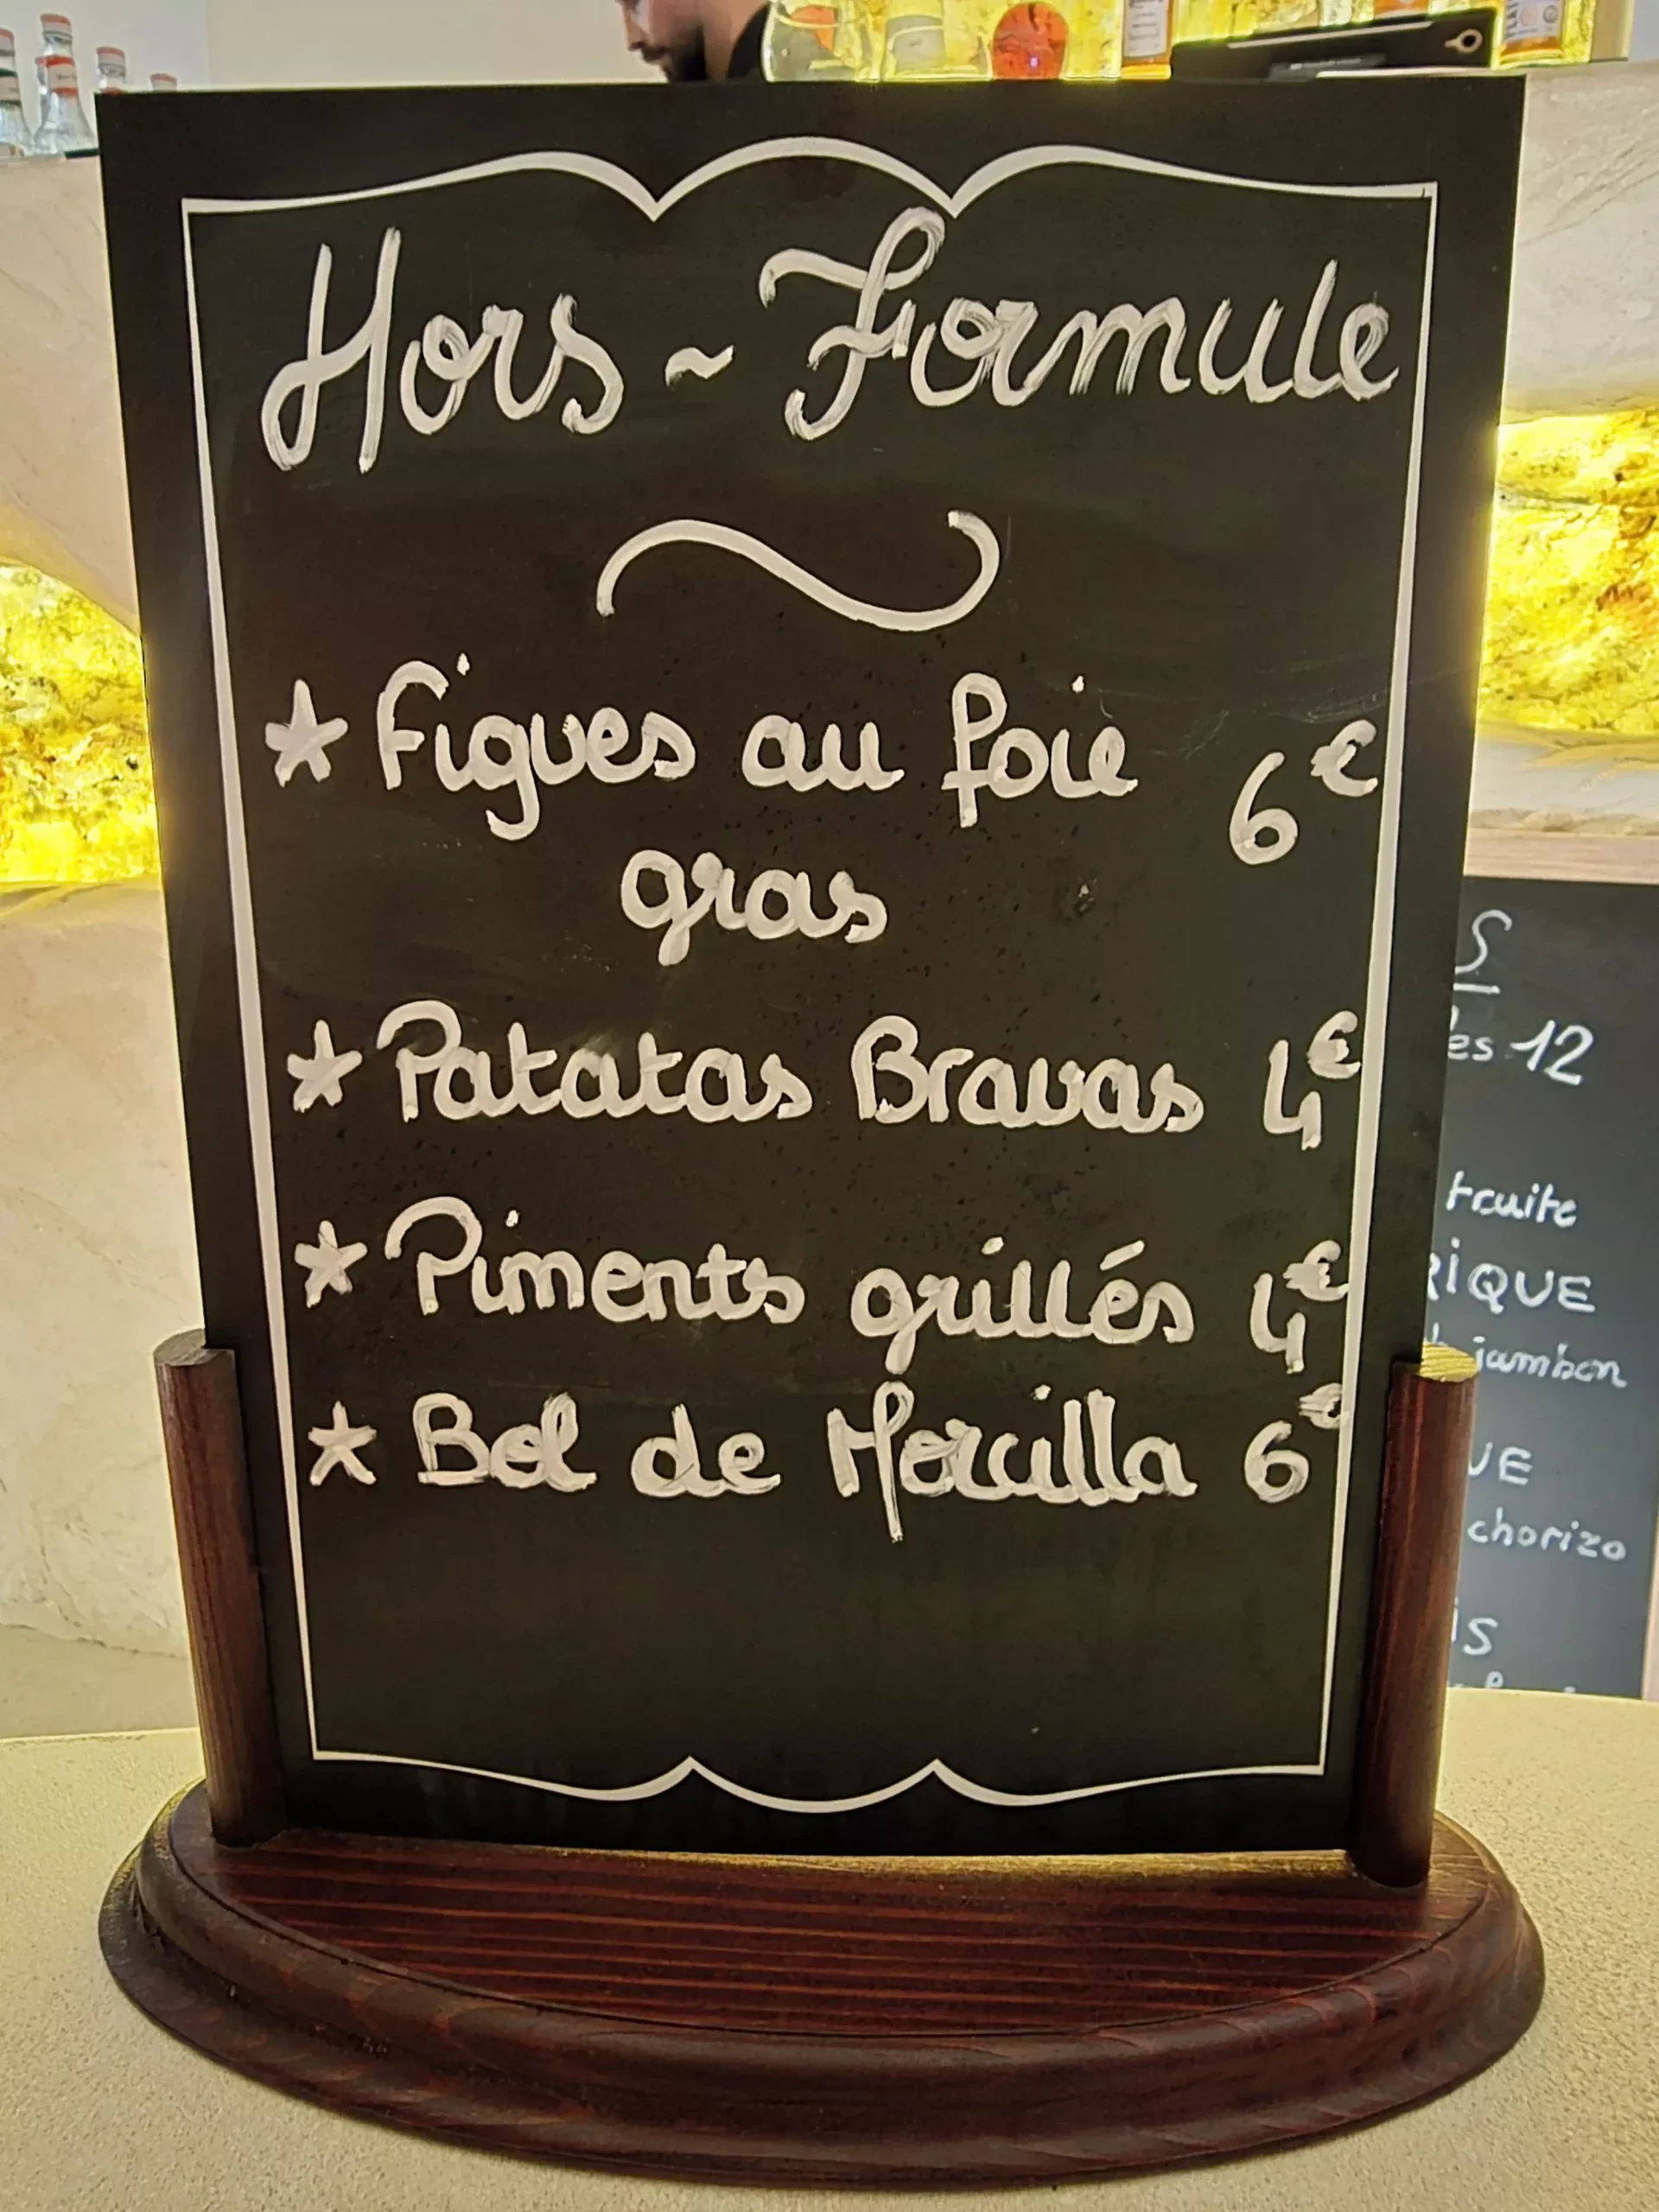 Hors ~ Formule
* Figues au foie 6€
gras
* Patatas Bravas 4€
* Piments grillés 4€
* Bol de Morcilla 6€
S
es 12
truite
RIQUE
jambon
UE
chorizo
is